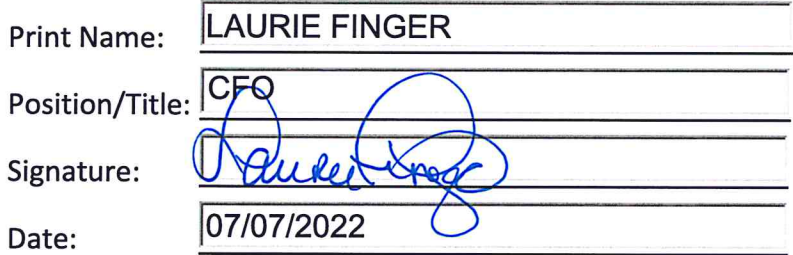 Print Name: LAURIE FINGER
Position/Title: CFO
Signature: Laurie Finger
Date: 07/07/2022